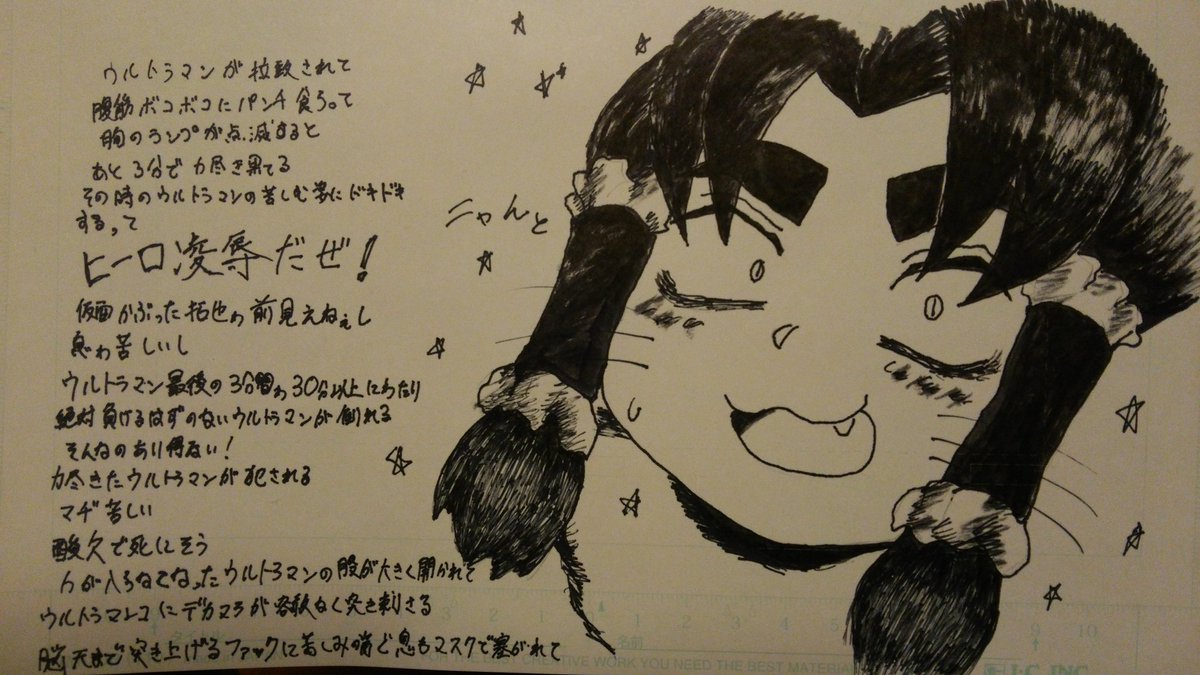 ウルトラマンが拉致されて
腹筋ボコボコにパンチ食らって
胸のランプが点滅すると
あと3分で力尽き果てる
その時のウルトラマンの苦しむ姿にドキドキ
するって
ヒーロー凌辱だぜ!
仮面かぶった拓也わ前見えねぇし
息わ苦しいし
ウルトラマン最後の3分間わ30分以上にわたり
絶対負けるはずのないウルトラマンが倒れる
そんなのあり得ない!
力尽きたウルトラマンが犯される
マヂ苦しい
酸欠で死にそう
力が入らなくなったウルトラマンの股が大きく開かれて
ウルトラマンコにデカマラが容赦なく突き刺さる
脳天まで突き上げるファックに苦しみ喘ぐ息もマスクで塞がれて
ニャんと
名前
FOR THE BEST CREATIVE WORK YOU NEED THE BEST MATERIAL
I・C INC.